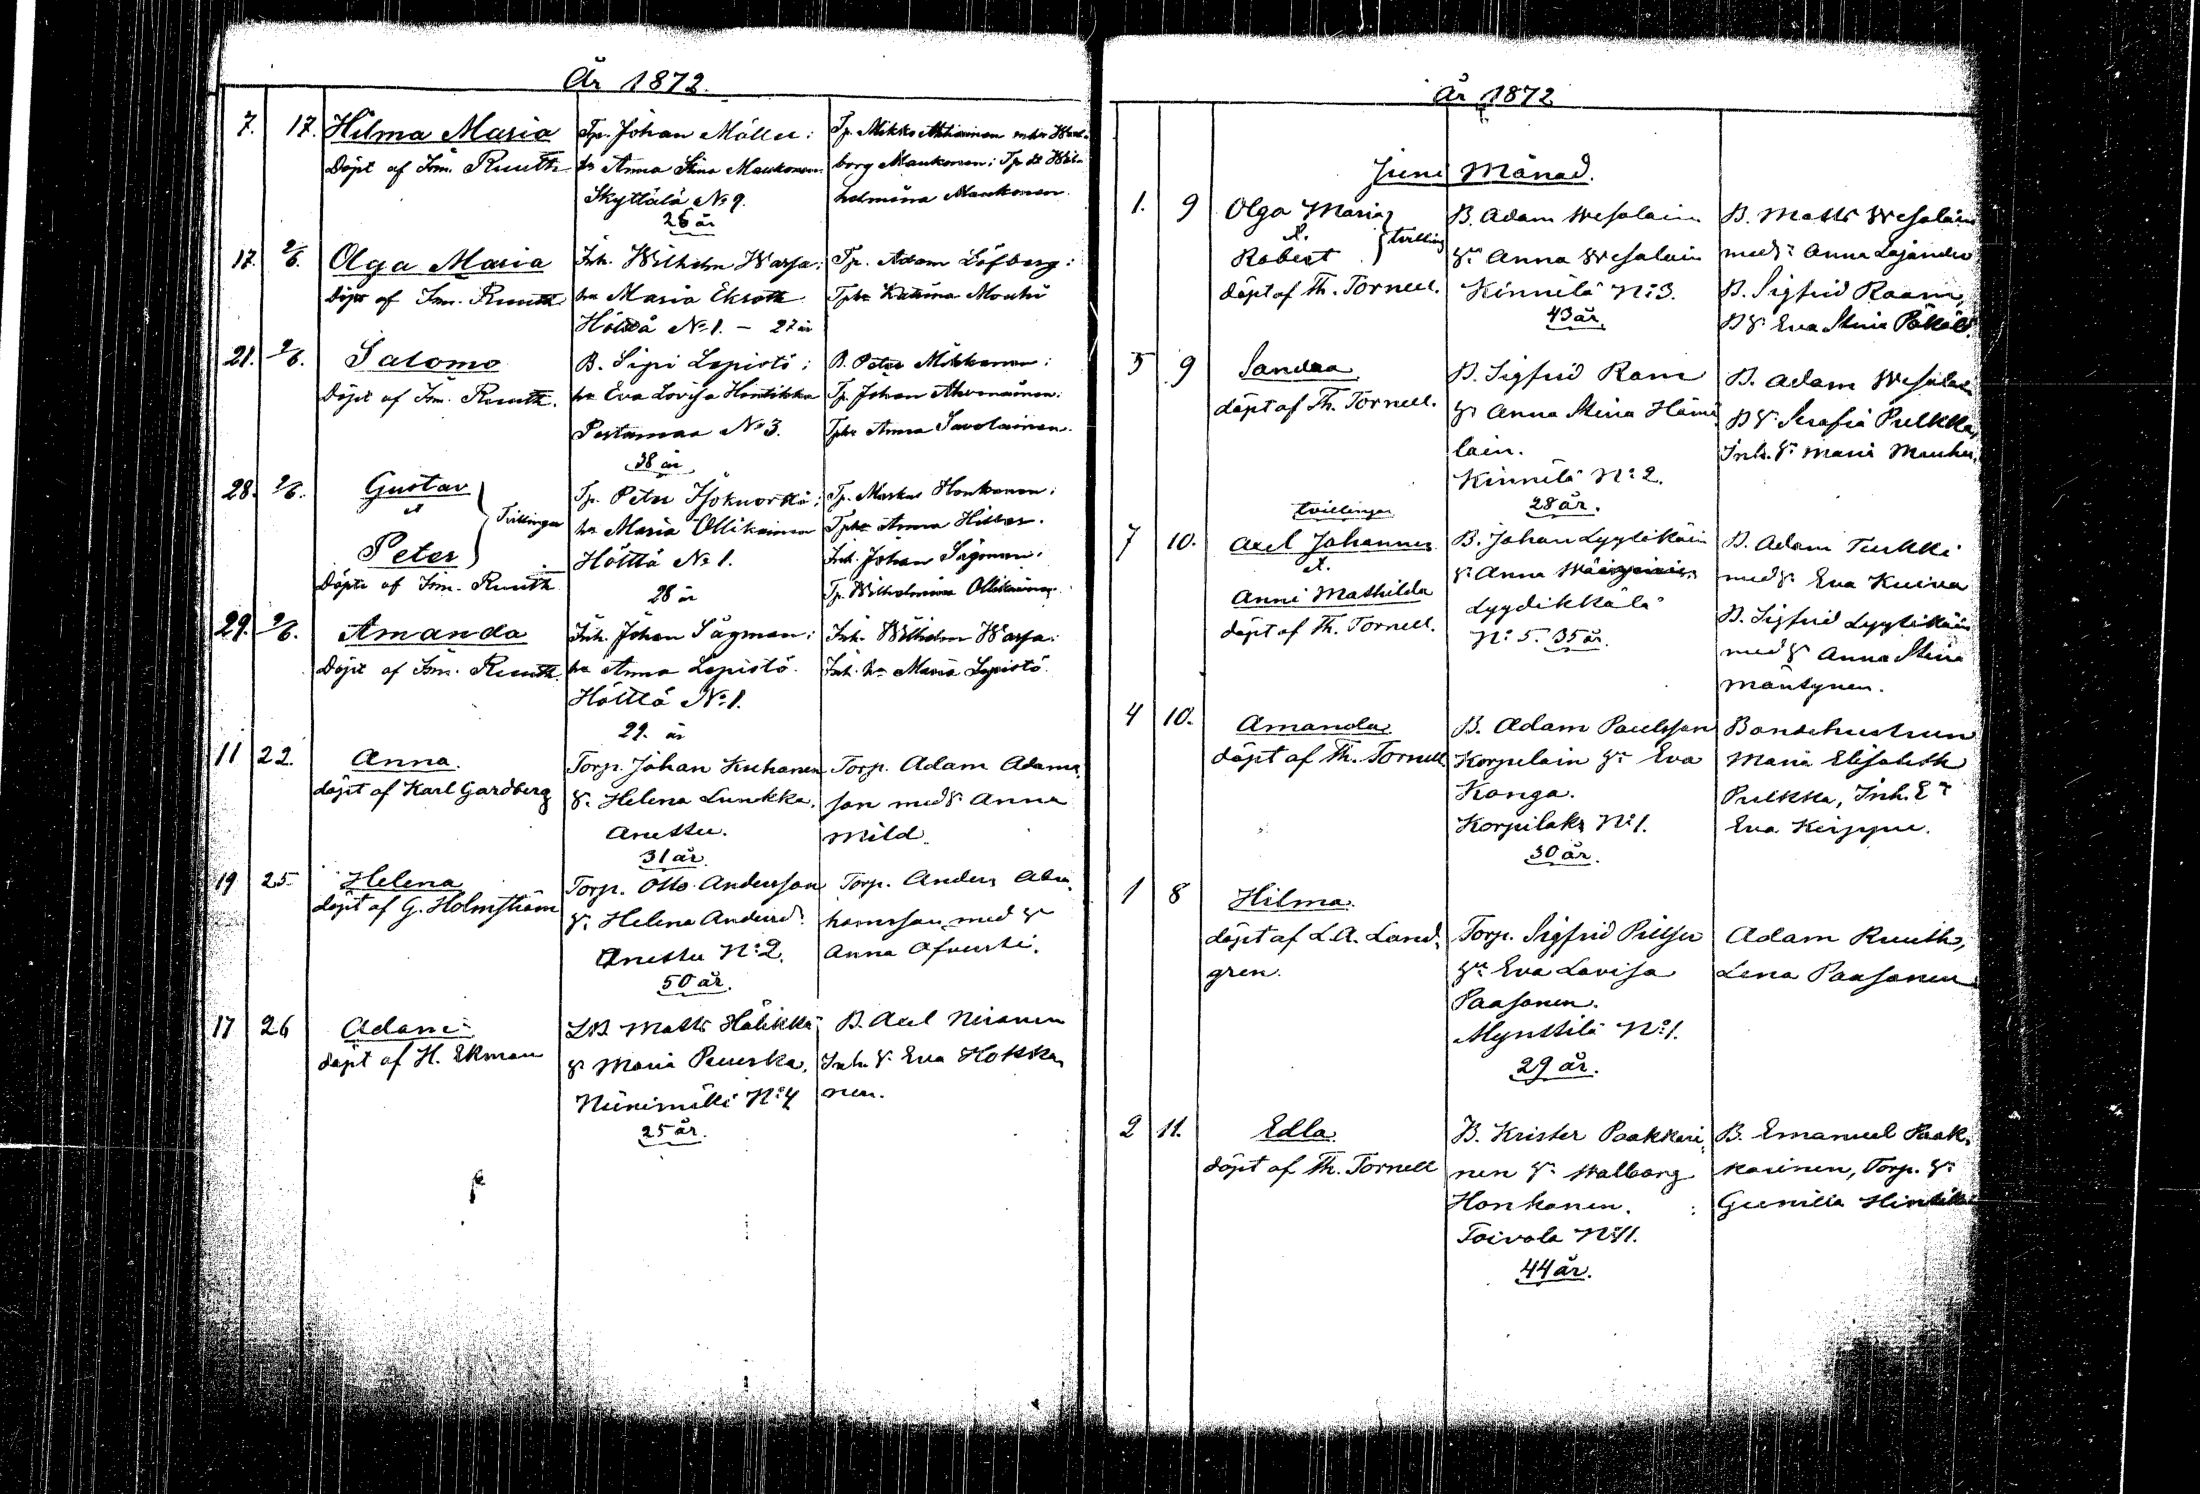 År 1872.
7. 17. Hilma Maria
Döpt af Ism. Ruuth
Tp. Johan Möller:
hu Anna Stina Maukonen
Skyttälä No 9.
26 år
Tp. Mikko Ahtiainen m hu Wal-
borg Maukonen: Tp dr Wil-
helmina Maukonen.
17. 2/6. Olga Maria
Döpt af Ism. Ruuth
Inh. Wilhelm Warsa:
hu Maria Ekroth
Hölttä No 1. - 27 år
Tp. Adam Löfberg:
Tphu Katarina Mouhi
21. 2/6. Salomo
Döpt af Ism. Ruuth.
B. Sipi Lepistö:
hu Eva Lovisa Hintikka
Pertamaa No 3.
38 år
B. Peter Mikkonen:
Tp. Johan Ahvenainen:
Tphu Anna Savolainen.
28. 2/6. Gustav
et
Peter
Tvillingar
Döpte af Ism. Ruuth
Tp. Peter
hu Maria Ollikainen
Hölttä No 1.
28 år
Tp. Markus Honkanen:
Tphu Anna
Inh. Johan Sågman:
Tp. Wilhelmina Ollikainen
29. 2/6. Amanda
Döpt af Ism. Ruuth.
Inh. Johan Sågman:
hu Anna Lepistö.
Hölttä No 1.
29. år
Inh. Wilhelm Warsa:
Inh. hu Maria Lepistö.
11 22. Anna.
döpt af Karl Gardberg
Torp. Johan Kuhanen
Hr. Helena Lunkka.
Anettu.
31 år.
Torp. Adam Adams
son med Hr Anna
Mild.
19 25 Helena
döpt af G. Holmström
Torp. Otto Andersson
Hr. Helena Andersd.
Anettu No 2.
50 år.
Torp. Anders Abra
hamsson med Hr
Anna
17 26 Adam
döpt af H. Ekman
LB Matts Hölikkä
Hr Maria
Niinimäki No 4
25 år.
B. Axel Niranen
Inh. Hr. Eva Kokka
nen.
År 1872
Juni Månad.
1. 9 Olga Maria
&.
Robert
tvilling
döpt af Th. Tornell.
B. Adam Wesalain
Hr. Anna Wesalain
Kinnilä No 3.
43 år.
B. Matts Wesalain
med Hr Anna Lajander
B. Sigfrid Raam,
B Hr Eva Stina
5 9 Sandra
döpt af Th. Tornell.
B. Sigfrid Ram
Hr Anna Stina Hämä
lain.
Kinnilä No 2.
28 år.
B. Adam Wesalai
B Hr. Serafia Pulkka,
Inh. Hr. Maria
tvillingar
7 10. Axel Johannes
&.
Anni Mathilda
döpt af Th. Tornell.
B. Johan Lyytikäin
Hr. Anna
Lyydikkälä
No 5. 35 år.
B. Adam Turkki
med Hr Eva Kuiva
B. Sigfrid Lyytikäin
med Hr Anna Stina
Mäntynen.
4 10. Amanda
döpt af Th. Tornell
B. Adam Paulsson
Korpelain Hr Eva
Konga.
Korpilaks No 1.
30 år.
Bondehustrun
Maria Elisabeth
Pulkka, Inh. E
Eva Kirppu.
1 8 Hilma.
döpt af L. A. Land-
gren.
Torp. Sigfrid
Hr. Eva Lovisa
Paasonen.
Mynttilä No 1.
29 år.
Adam Ruuth,
Lena Paasonen
2 11. Edla
döpt af Th. Tornell
B. Krister Paakkari
nen Hr. Walborg
Honkanen.
Toivola No 11.
44 år.
B. Emanuel Paak-
karinen, Torp. Hr
Gunilla Hintikka